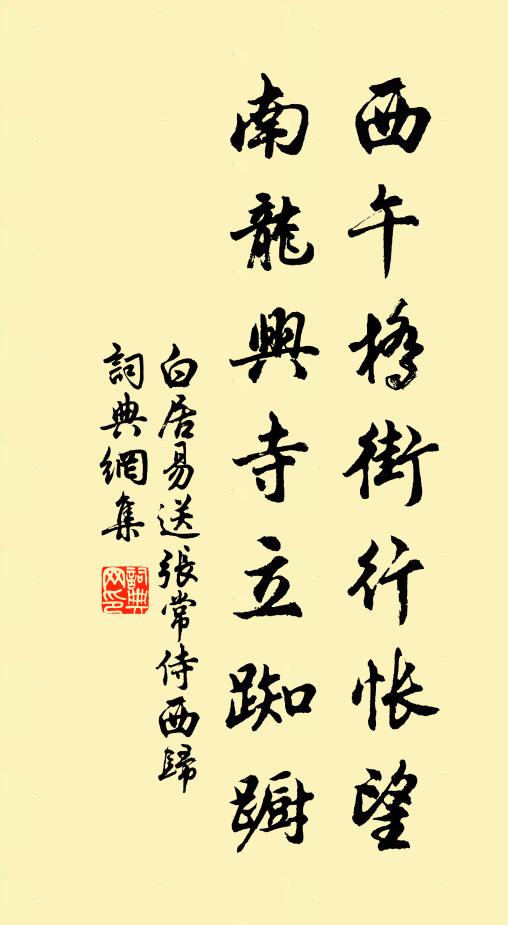 西午橋街行悵望
南龍興寺立踟躕
白居易送張常侍西歸
詞典網集
詞典
网印